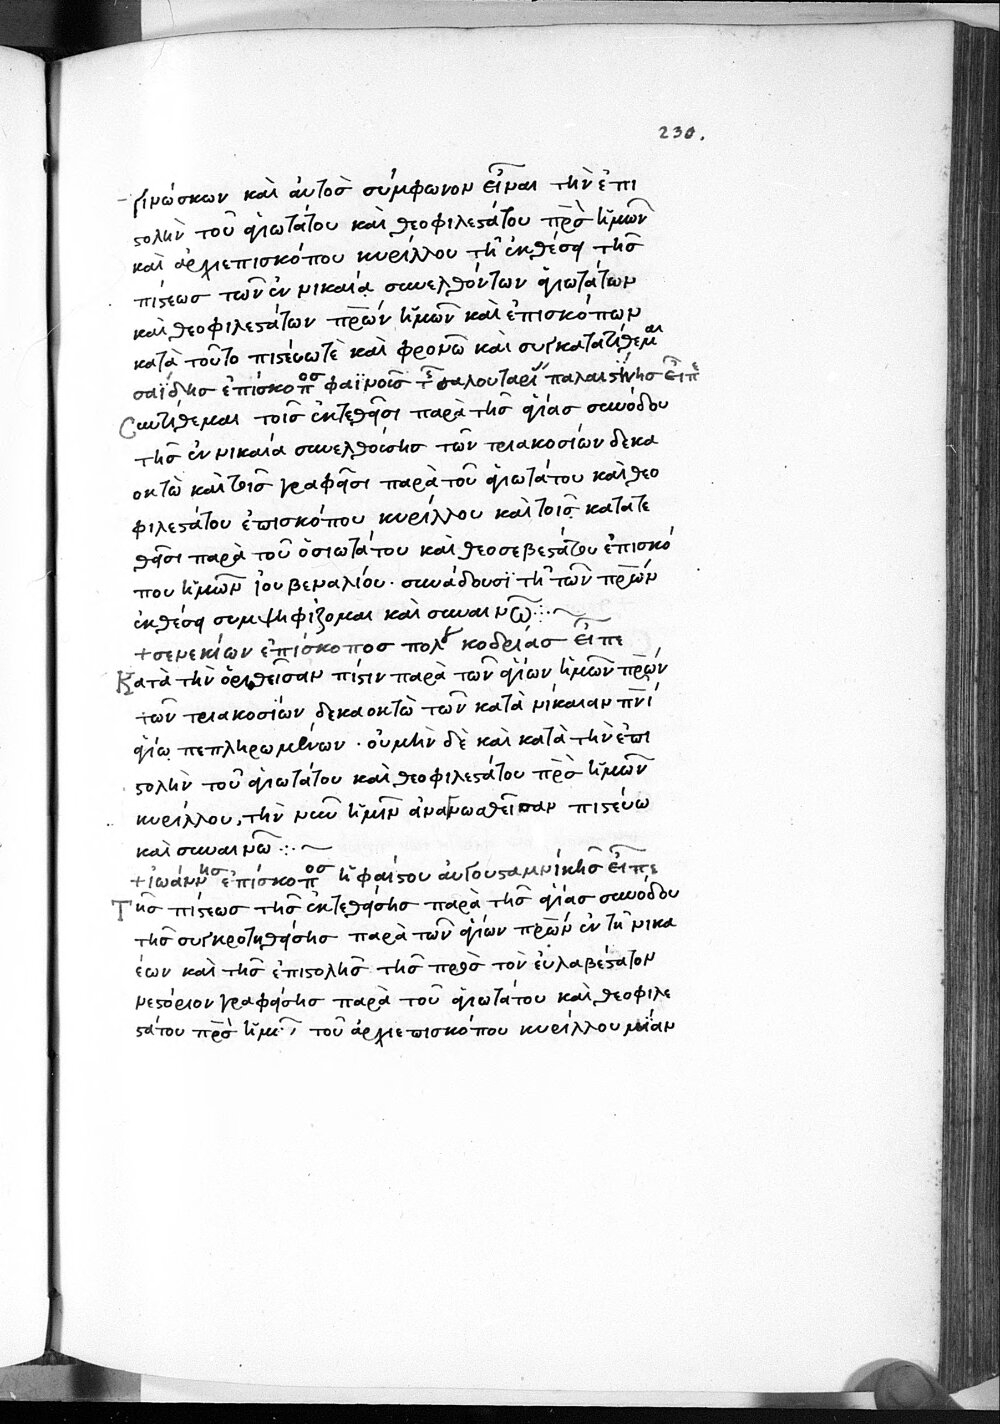 230.
γινώσκων καὶ αὐτὸσ σύμφωνον εἶναι τὴν ἐπι
ϛολὴν τοῦ ἁγιωτάτου καὶ θεοφιλεϛάτου πρ̅σ ἡμῶν
καὶ ἀρχιεπισκόπου κυρίλλου τῆ ἐκθέσει τῆσ
πίϛεωσ τῶν ἐν νικαία συνελθόντων ἁγιωτάτων
καὶ θεοφιλεϛάτων πρ̅ων ἡμῶν καὶ ἐπισκόπων
κατὰ τοῦτο πιϛεύω τὲ καὶ φρονῶ καὶ συγκατατίθεμαι
σαΐδησ ἐπίσκοπ̅οσ φαϊνοῖσ παλαιϛίνησ εἶπε
Συντίθεμαι τοῖσ ἐκτεθεῖσι παρὰ τῆσ ἁγίασ συνόδου
τῆσ ἐν νικαία συνελθούσησ τῶν τριακοσίων δεκα
οκτὼ καὶ τοῖσ γραφεῖσι παρὰ τοῦ ἁγιωτάτου καὶ θεο
φιλεϛάτου ἐπισκόπου κυρίλλου καὶ τοῖσ κατατε
θεῖσι παρὰ τοῦ ὁσιωτάτου καὶ θεοσεβεϛάτου ἐπισκό
που ἡμῶν ἰουβεναλίου · συνάδουσϊ τῆ τῶν πρ̅ων
ἐκθέσει συμψηφίζομαι καὶ συναινῶ
+ σενεκίων ἐπίσκοποσ πολ κοδρίασ εἶπε
Κατὰ τὴν ὁρισθεῖσαν πίϛιν παρὰ τῶν ἁγίων ἡμῶν πρ̅ων
τῶν τριακοσίων δεκαοκτὼ τῶν κατὰ νίκαιαν πν̅ι
ἁγίω πεπληρωμένων · οὐ μὴν δὲ καὶ κατὰ τὴν ἐπι
ϛολὴν τοῦ ἁγιωτάτου καὶ θεοφιλεϛάτου πρ̅σ ἡμῶν
κυρίλλου, τὴν νῦν ἡμῖν ἀναγνωσθεῖσαν πιϛεύω
καὶ συναινῶ
+ ἰωάννησ ἐπίσκοπ̅οσ ἡφαίϛου αὐγουϛαμνίκησ εἶπε
Τῆσ πίϛεωσ τῆσ ἐκτεθείσησ παρὰ τῆσ ἁγίασ συνόδου
τῆσ συγκροτηθείσησ παρὰ τῶν ἁγίων πρ̅ων ἐν τῆ νικα
έων καὶ τῆσ ἐπιϛολῆσ τῆσ πρὸσ τὸν εὐλαβέϛατον
νεϛόριον γραφείσησ παρὰ τοῦ ἁγιωτάτου καὶ θεοφιλε
ϛάτου πρ̅σ τοῦ ἀρχιεπισκόπου κυρίλλου μίαν